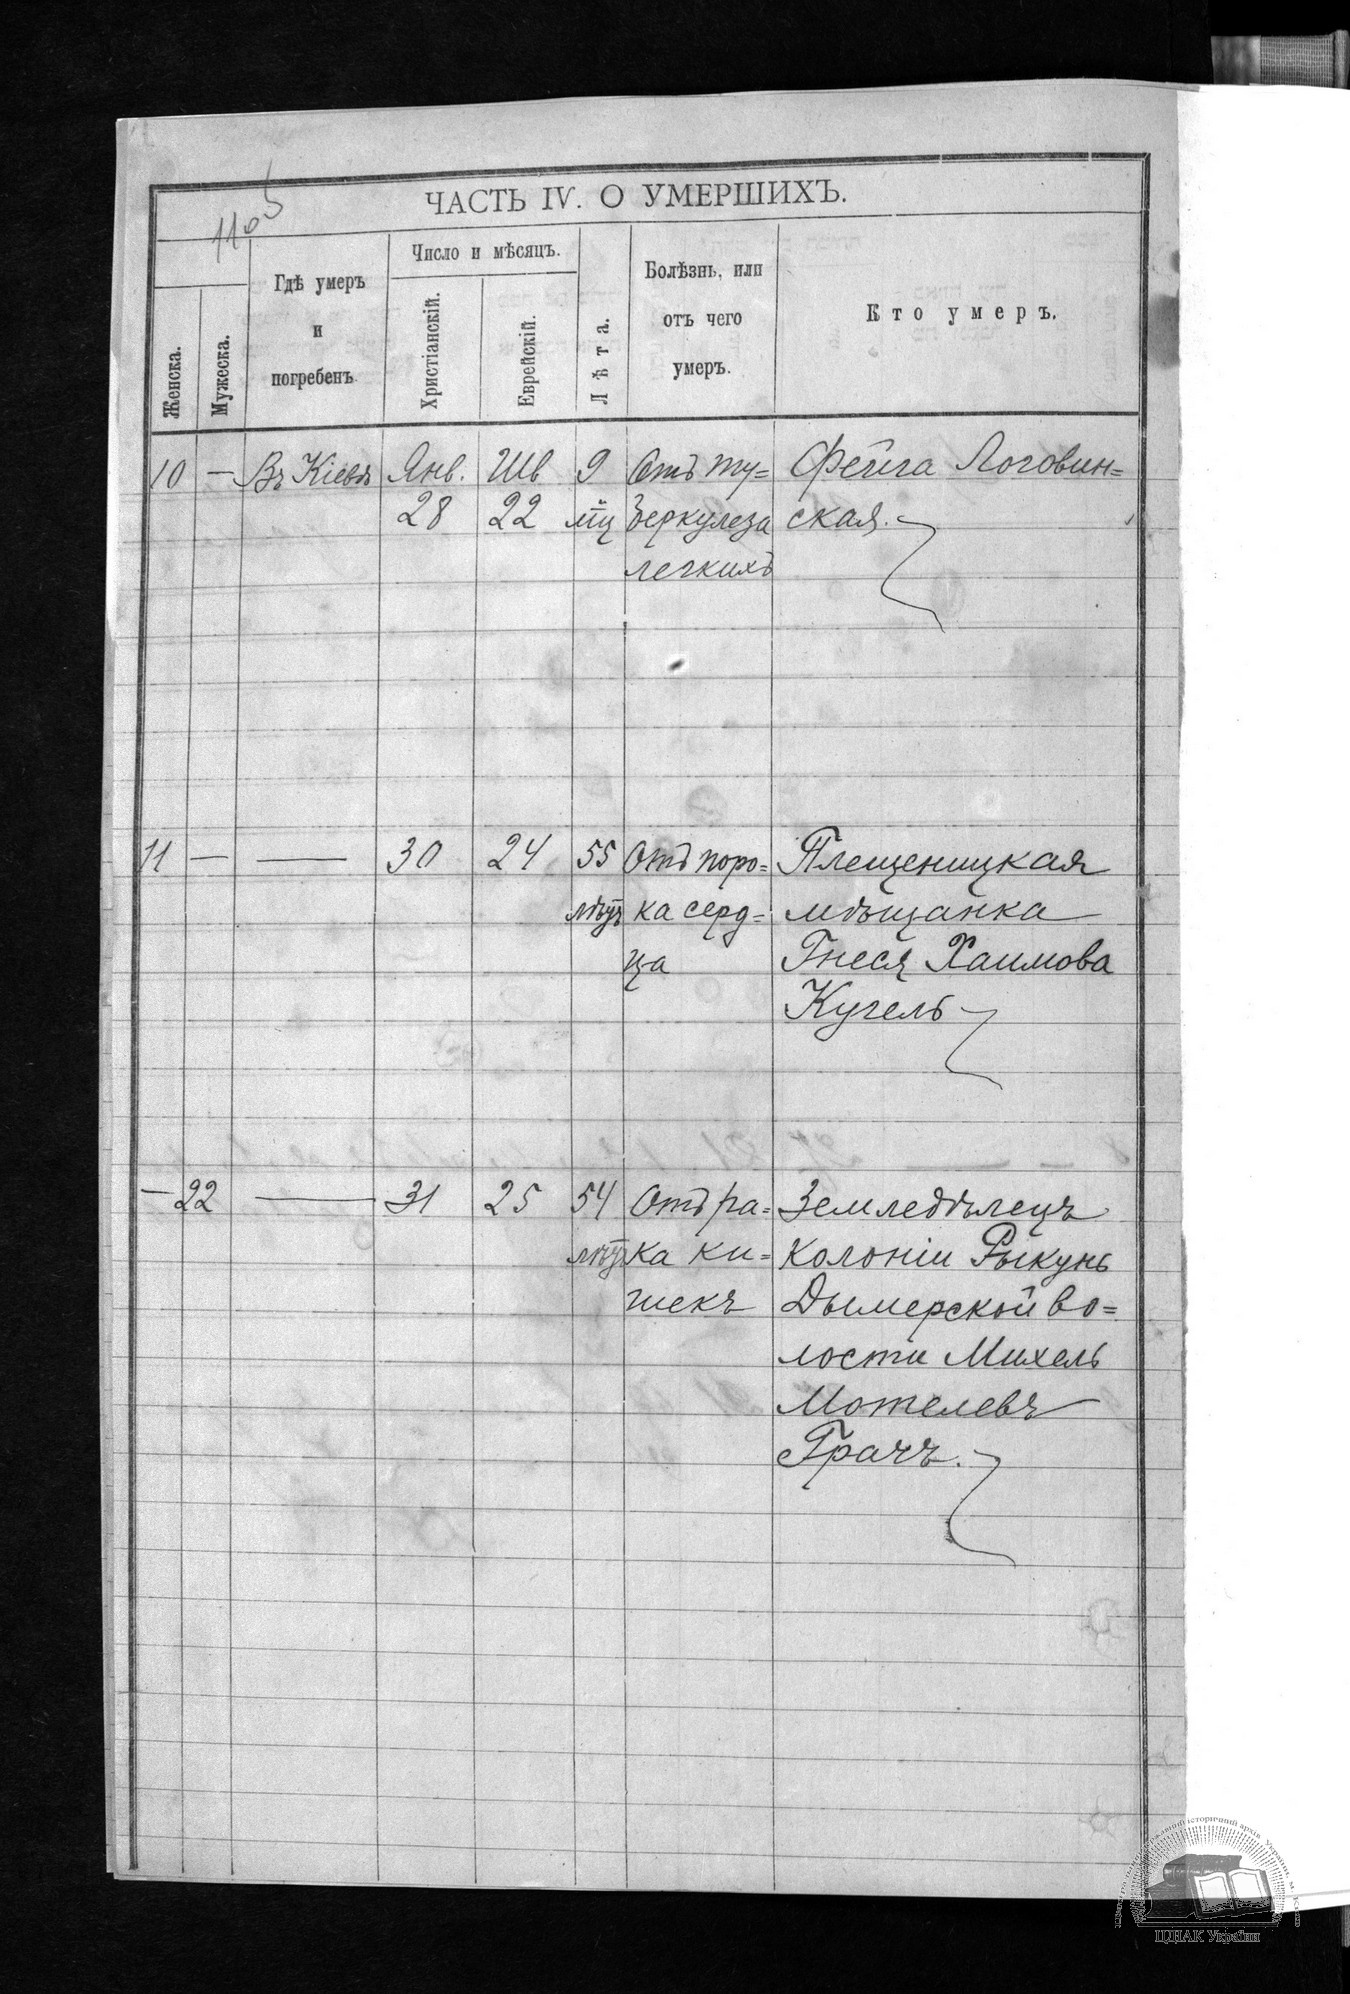 ЧАСТЬ IV. О УМЕРШИХЪ.
Женска.
Мужеска.
Гдѣ умеръ
и
погребенъ
Число и мѣсяцъ.
Христіанскій.
Еврейскій.
Лѣта.
Болѣзнь, или
отъ чего
умеръ.
Кто умеръ.
10 — Въ Кіевѣ Янв. Шв 9 Отъ ту= Фейга Логовин=
28 22 мц беркулеза ская.
легкихъ
11 — — 30 24 55 Отъ поро= Плещеницкая
лѣтъ ка серд= мѣщанка
ца Гнеся Хаимова
Кугель
— 22 — 31 25 54 Отъ ра= Земледѣлецъ
лѣтъ ка ки= колоніи Рыкунь
шекъ Дымерской во=
лости Михель
Мотелевъ
Грачъ.
ЦДІАК України